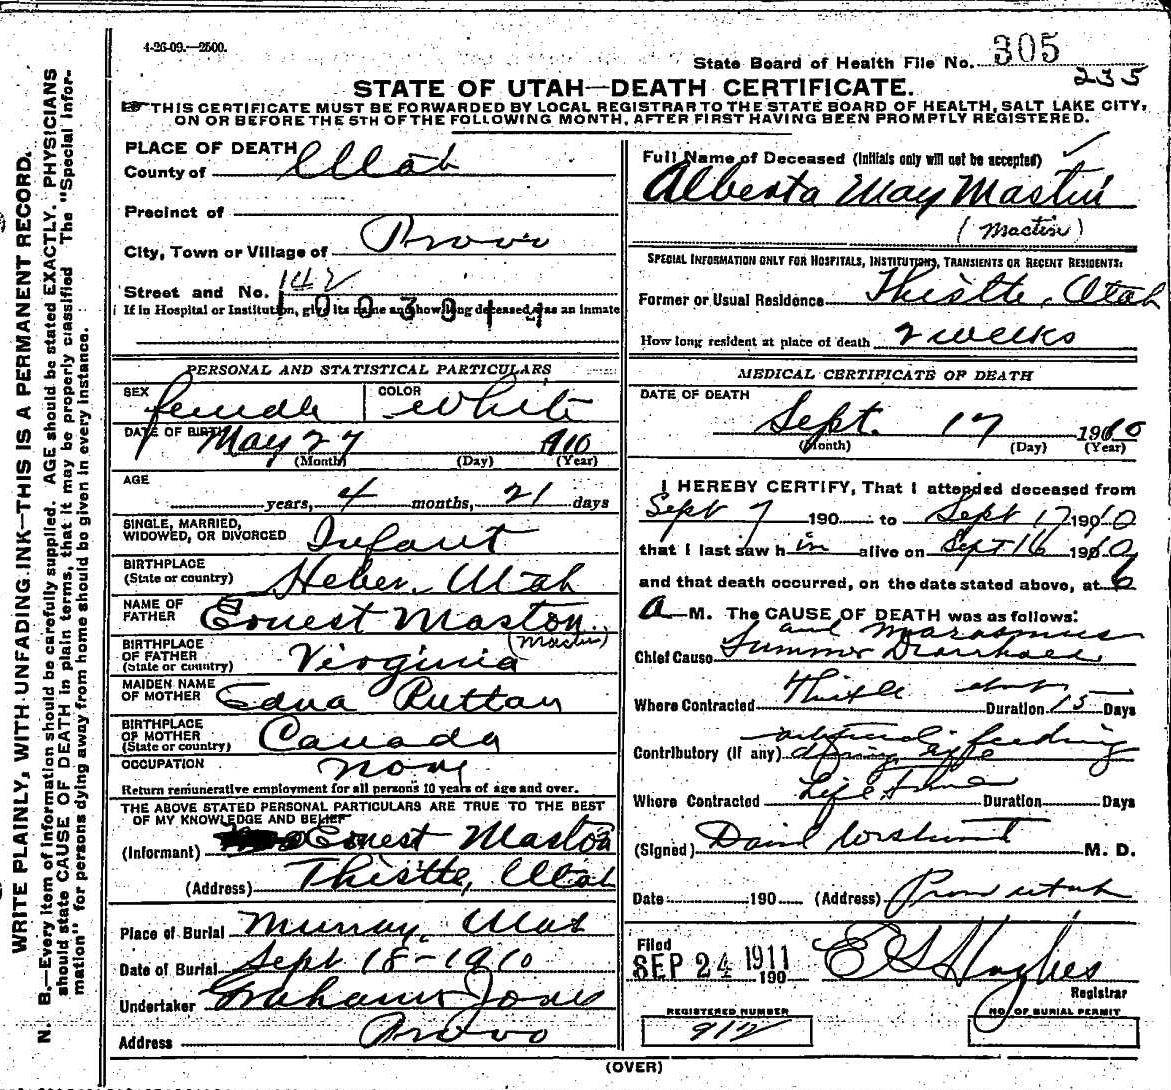 4-26-09.—2500.
State Board of Health File No. 305
235
STATE OF UTAH—DEATH CERTIFICATE.
THIS CERTIFICATE MUST BE FORWARDED BY LOCAL REGISTRAR TO THE STATE BOARD OF HEALTH, SALT LAKE CITY,
ON OR BEFORE THE 5TH OF THE FOLLOWING MONTH, AFTER FIRST HAVING BEEN PROMPTLY REGISTERED.
WRITE PLAINLY, WITH UNFADING INK—THIS IS A PERMANENT RECORD.
N. B.—Every item of information should be carefully supplied. AGE should be stated EXACTLY. PHYSICIANS
should state CAUSE OF DEATH in plain terms, that it may be properly classified The "Special Infor-
mation" for persons dying away from home should be given in every instance.
PLACE OF DEATH
County of Utah
Precinct of
City, Town or Village of Provo
Street and No. 142
If in Hospital or Institution, give its name and how long deceased was an inmate
PERSONAL AND STATISTICAL PARTICULARS
SEX female COLOR White
DATE OF BIRTH May 27 1910
(Month) (Day) (Year)
AGE
years, 4 months, 21 days
SINGLE, MARRIED,
WIDOWED, OR DIVORCED Infant
BIRTHPLACE
(State or country) Heber, Utah
NAME OF
FATHER Ernest Maston
(Mastin)
BIRTHPLACE
OF FATHER
(State or country) Virginia
MAIDEN NAME
OF MOTHER Edna Ruttan
BIRTHPLACE
OF MOTHER
(State or country) Canada
OCCUPATION none
Return remunerative employment for all persons 10 years of age and over.
THE ABOVE STATED PERSONAL PARTICULARS ARE TRUE TO THE BEST
OF MY KNOWLEDGE AND BELIEF
(Informant) Ernest Maston
(Address) Thistle, Utah
Place of Burial Murray, Utah
Date of Burial Sept 18-1910
Undertaker Graham Jones
Address Provo
Full Name of Deceased (Initials only will not be accepted)
Alberta May Mastin
(Mastin)
SPECIAL INFORMATION ONLY FOR HOSPITALS, INSTITUTIONS, TRANSIENTS OR RECENT RESIDENTS:
Former or Usual Residence Thistle, Utah
How long resident at place of death 2 weeks
MEDICAL CERTIFICATE OF DEATH
DATE OF DEATH
Sept. 17 1910
(Month) (Day) (Year)
I HEREBY CERTIFY, That I attended deceased from
Sept 7 190 to Sept 17 1910
that I last saw h im alive on Sept 16 1910
and that death occurred, on the date stated above, at 6
a M. The CAUSE OF DEATH was as follows:
and Marasmus
Chief Cause Summer Diarrhoea
Where Contracted Thistle Utah Duration 15 Days
Contributory (if any) artificial feeding
during life
Where Contracted Life Time Duration Days
(Signed) David M. D.
Date 190 (Address) Provo Utah
Filed
SEP 24 1911 190
E S Hughes
Registrar
REGISTERED NUMBER
912
NO. OF BURIAL PERMIT
(OVER)